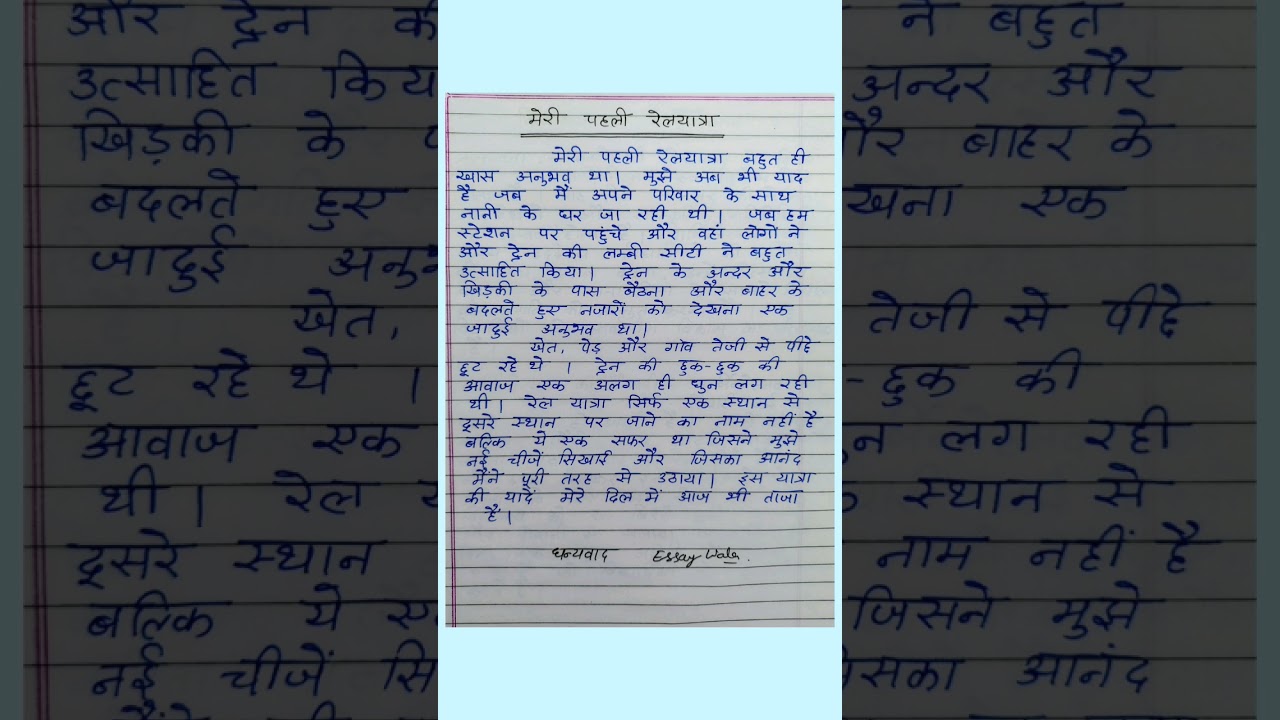 मेरी पहली रेलयात्रा
मेरी पहली रेलयात्रा बहुत ही
खास अनुभव था। मुझे अब भी याद
है जब मैं अपने परिवार के साथ
नानी के घर जा रही थी। जब हम
स्टेशन पर पहुंचे और वहां लोगों ने
और ट्रेन की लम्बी सीटी ने बहुत
उत्साहित किया। ट्रेन के अन्दर और
खिड़की के पास बैठना और बाहर के
बदलते हुए नजारों को देखना एक
जादुई अनुभव था।
खेत, पेड़ और गांव तेजी से पीछे
छूट रहे थे । ट्रेन की छुक-छुक की
आवाज एक अलग ही धुन लग रही
थी। रेल यात्रा सिर्फ एक स्थान से
दूसरे स्थान पर जाने का नाम नहीं है
बल्कि ये एक सफर था जिसने मुझे
नई चीजें सिखाई और जिसका आनंद
मैंने पूरी तरह से उठाया। इस यात्रा
की यादें मेरे दिल में आज भी ताजा
हैं।
धन्यवाद Essay Wala.